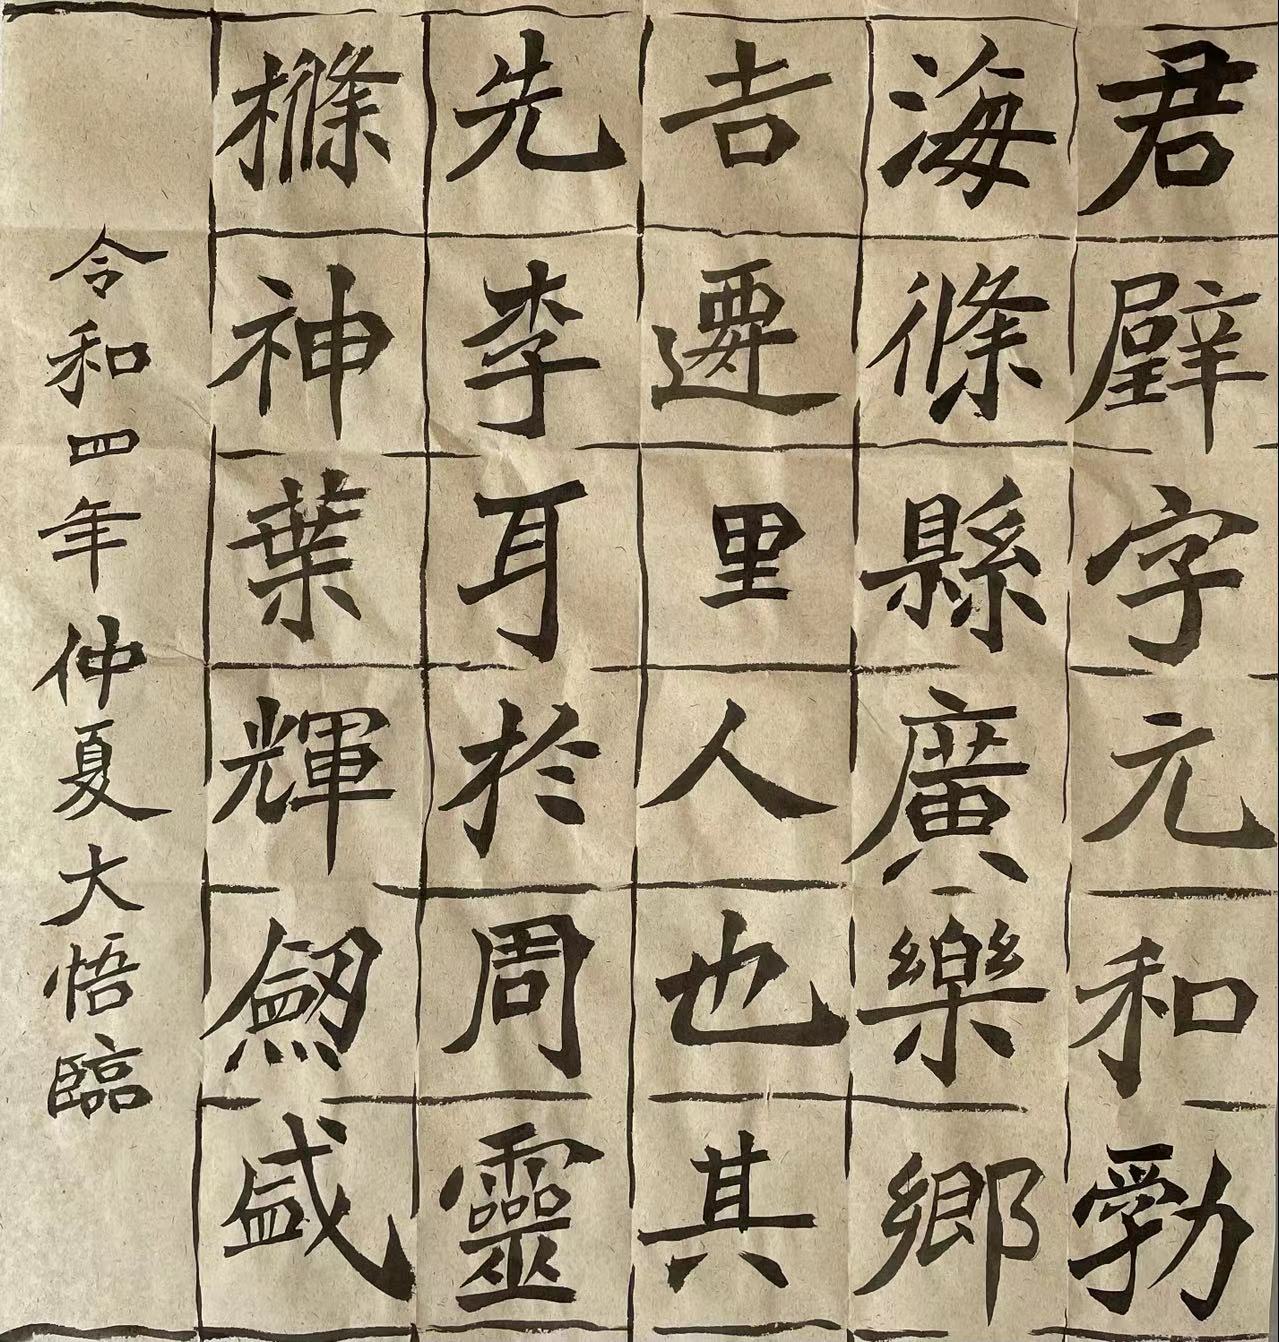 君璧字元和勃
海條縣廣樂鄉
吉遷里人也其
先李耳於周靈
樤神葉輝劔盛
令和四年仲夏大悟臨